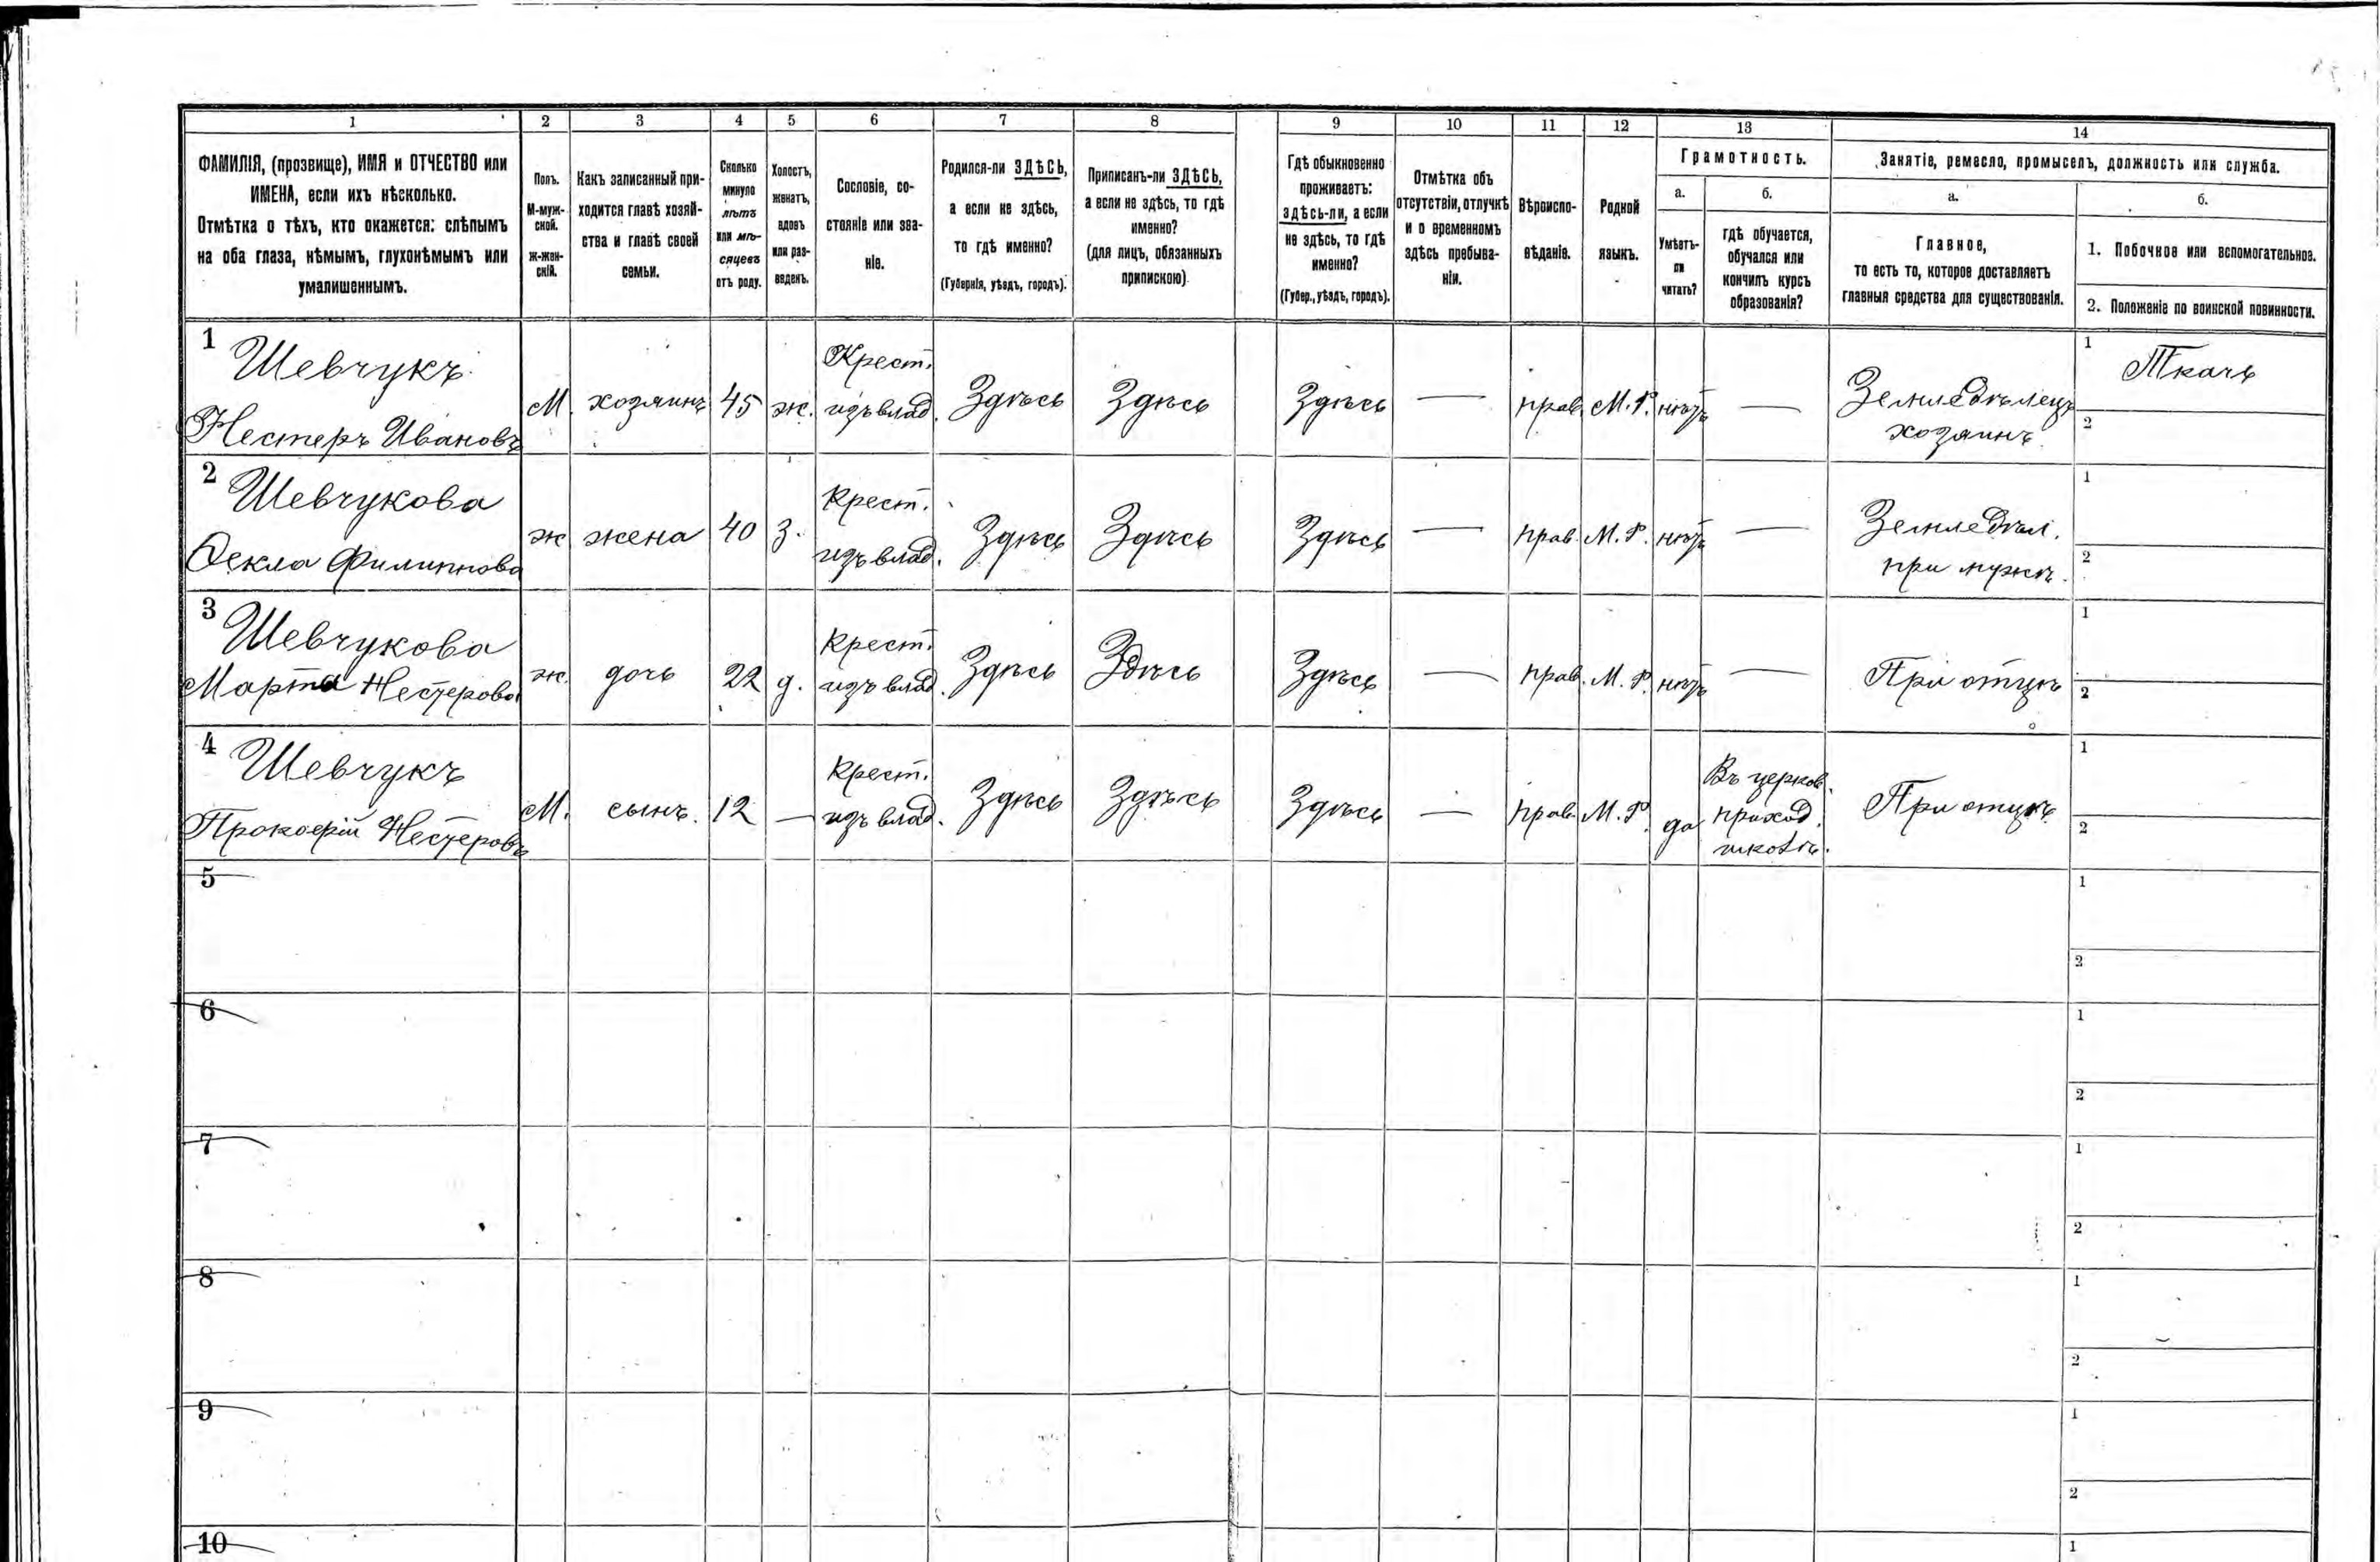 1 2 3 4 5 6 7 8 9 10 11 12 13 14
ФАМИЛІЯ, (прозвище), ИМЯ и ОТЧЕСТВО или
ИМЕНА, если ихъ нѣсколько.
Отмѣтка о тѣхъ, кто окажется: слѣпымъ
на оба глаза, нѣмымъ, глухонѣмымъ или
умалишеннымъ.
Полъ.
М-муж-
ской.
Ж-жен-
скій.
Какъ записанный при-
ходится главѣ хозяй-
ства и главѣ своей
семьи.
Сколько
минуло
лѣтъ
или мѣ-
сяцевъ
отъ роду.
Холостъ,
женатъ,
вдовъ
или раз-
веденъ.
Сословіе, со-
стояніе или зва-
ніе.
Родился-ли ЗДѢСЬ,
а если не здѣсь,
то гдѣ именно?
(Губернія, уѣздъ, городъ).
Приписанъ-ли ЗДѢСЬ,
а если не здѣсь, то гдѣ
именно?
(для лицъ, обязанныхъ
припискою)
Гдѣ обыкновенно
проживаетъ:
здѣсь-ли, а если
не здѣсь, то гдѣ
именно?
(Губер., уѣздъ, городъ).
Отмѣтка объ
отсутствіи, отлучкѣ
и о временномъ
здѣсь пребыва-
ніи.
Вѣроиспо-
вѣданіе.
Родной
языкъ.
Грамотность.
а.
Умѣетъ-
ли
читать?
б.
гдѣ обучается,
обучался или
кончилъ курсъ
образованія?
Занятіе, ремесло, промыселъ, должность или служба.
а.
Главное,
то есть то, которое доставляетъ
главныя средства для существованія.
б.
1. Побочное или вспомогательное.
2. Положеніе по воинской повинности.
1 Шевчукъ
Нестеръ Ивановъ
М. хозяинъ 45 ж.
Крест.
изъ влад.
Здѣсь Здѣсь Здѣсь — прав. М. Р. нѣтъ —
Земледѣлецъ
хозяинъ
1 Ткачъ
2
2 Шевчукова
Ѳекла Филиппова
ж жена 40 З.
Крест.
изъ влад.
Здѣсь Здѣсь Здѣсь — прав. М. Р. нѣтъ —
Земледѣл.
при мужѣ.
1
2
3 Шевчукова
Марта Нестерова
ж. дочь 22 д.
Крест.
изъ влад.
Здѣсь Здѣсь Здѣсь — прав. М. Р. нѣтъ —
При отцѣ
1
2
4 Шевчукъ
Прокофій Нестеровъ
М. сынъ. 12 —
Крест.
изъ влад.
Здѣсь Здѣсь Здѣсь — прав. М. Р. да
Въ церков.
приход.
школѣ.
При отцѣ
1
2
5
1
2
6
1
2
7
1
2
8
1
2
9
1
2
10
1